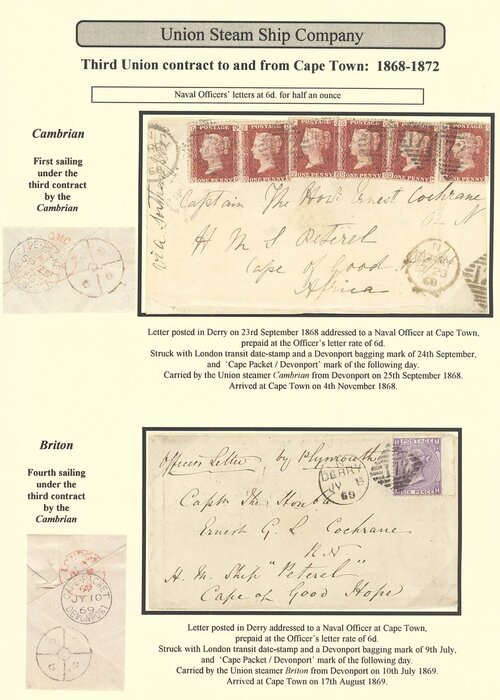 Union Steam Ship Company
Third Union contract to and from Cape Town: 1868-1872
Naval Officers' letters at 6d. for half an ounce
Cambrian
First sailing
under the
third contract
by the
Cambrian
POSTAGE
POSTAGE
POSTAGE
POSTAGE
POSTAGE
POSTAGE
ONE PENNY
ONE PENNY
ONE PENNY
ONE PENNY
ONE PENNY
ONE PENNY
via Southampton
Captain The Honl Ernest Cochrane
R N
H M S Peterel
Cape of Good Hope
Africa
23
68
DEVONPORT
Letter posted in Derry on 23rd September 1868 addressed to a Naval Officer at Cape Town,
prepaid at the Officer's letter rate of 6d.
Struck with London transit date-stamp and a Devonport bagging mark of 24th September,
and 'Cape Packet / Devonport' mark of the following day.
Carried by the Union steamer Cambrian from Devonport on 25th September 1868.
Arrived at Cape Town on 4th November 1868.
Briton
Fourth sailing
under the
third contract
by the
Cambrian
Officers Letter by Plymouth
DERRY
JY 8
69
POSTAGE
SIX PENCE
Captn The Honble
Ernest G. L. Cochrane
R N
H. M. Ship "Peterel"
Cape of Good Hope
LONDON
69
CAPE PACKET
JY 10
69
DEVONPORT
Letter posted in Derry addressed to a Naval Officer at Cape Town,
prepaid at the Officer's letter rate of 6d.
Struck with London transit date-stamp and a Devonport bagging mark of 9th July,
and 'Cape Packet / Devonport' mark of the following day.
Carried by the Union steamer Briton from Devonport on 10th July 1869.
Arrived at Cape Town on 17th August 1869.